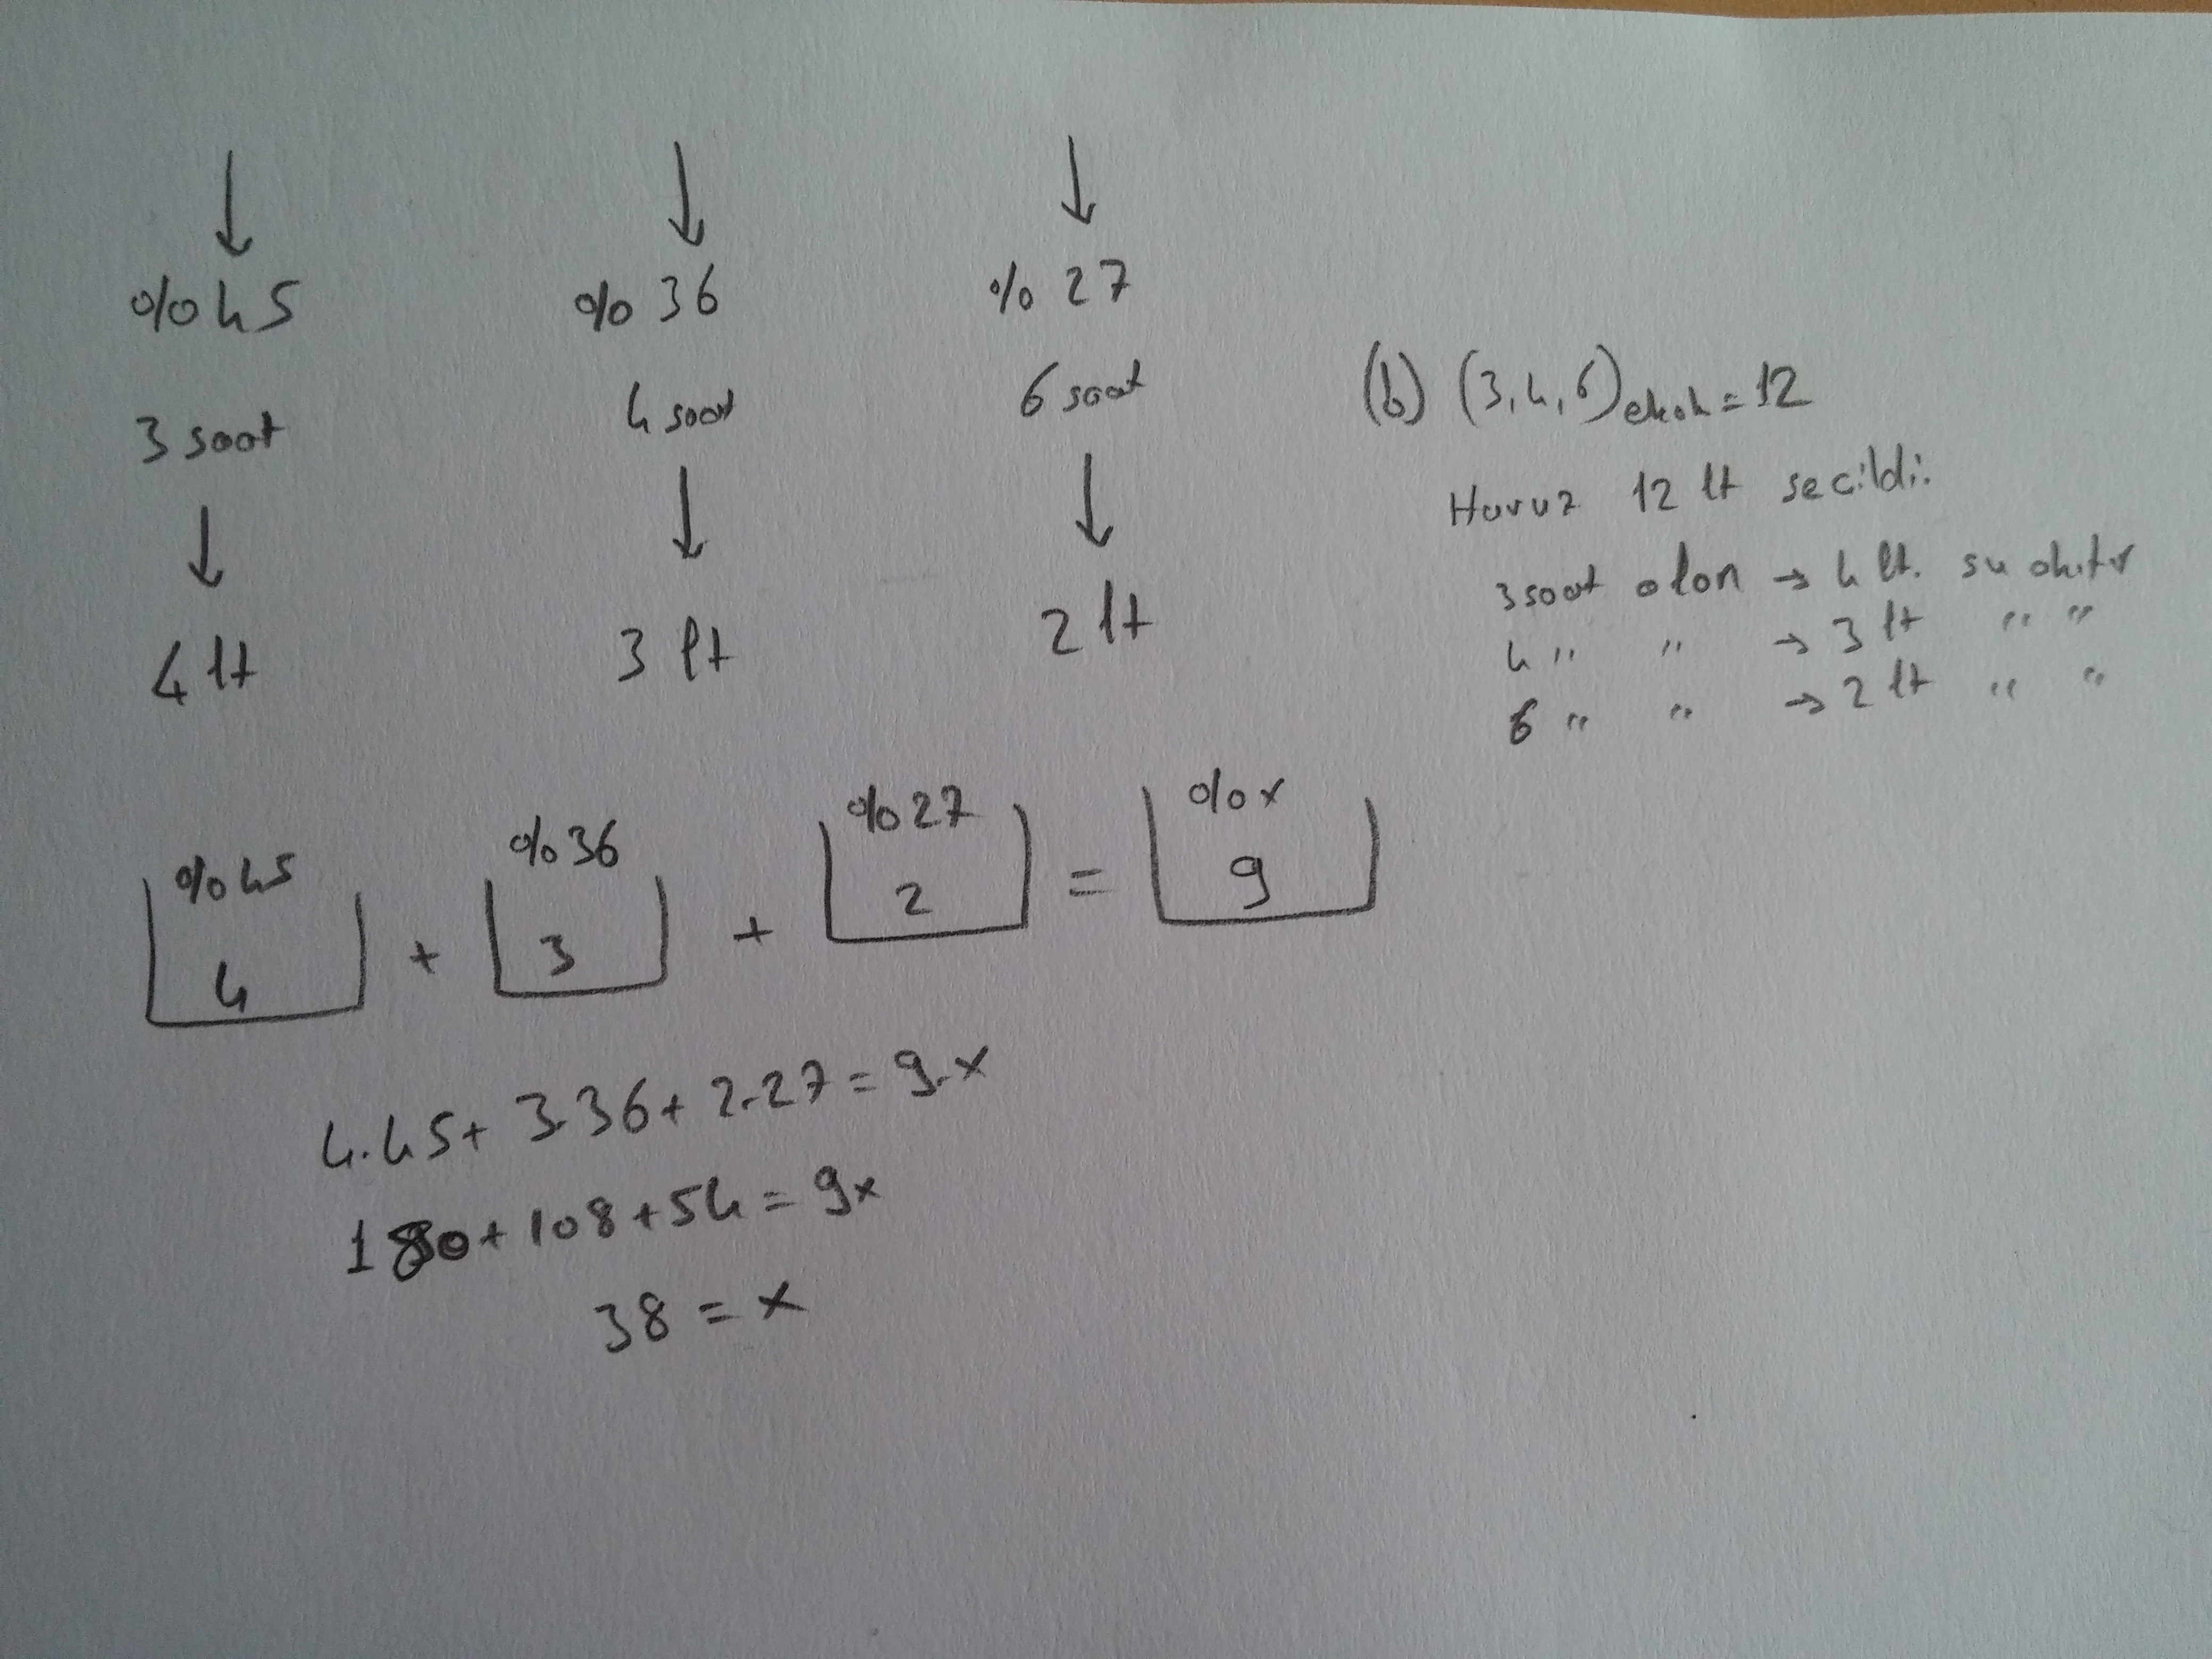 %45 %36 %27
3 saat 4 saat 6 saat
4 lt 3 lt 2 lt
(b) (3,4,6)ekok = 12
Havuz 12 lt secildi.
3 saat olan → 4 lt. su akıtır
4 " " → 3 lt " "
6 " " → 2 lt " "
%45 %36 %27 %x
4 + 3 + 2 = 9
4.45+ 3.36+ 2.27 = 9.x
180+108+54 = 9x
38 = x